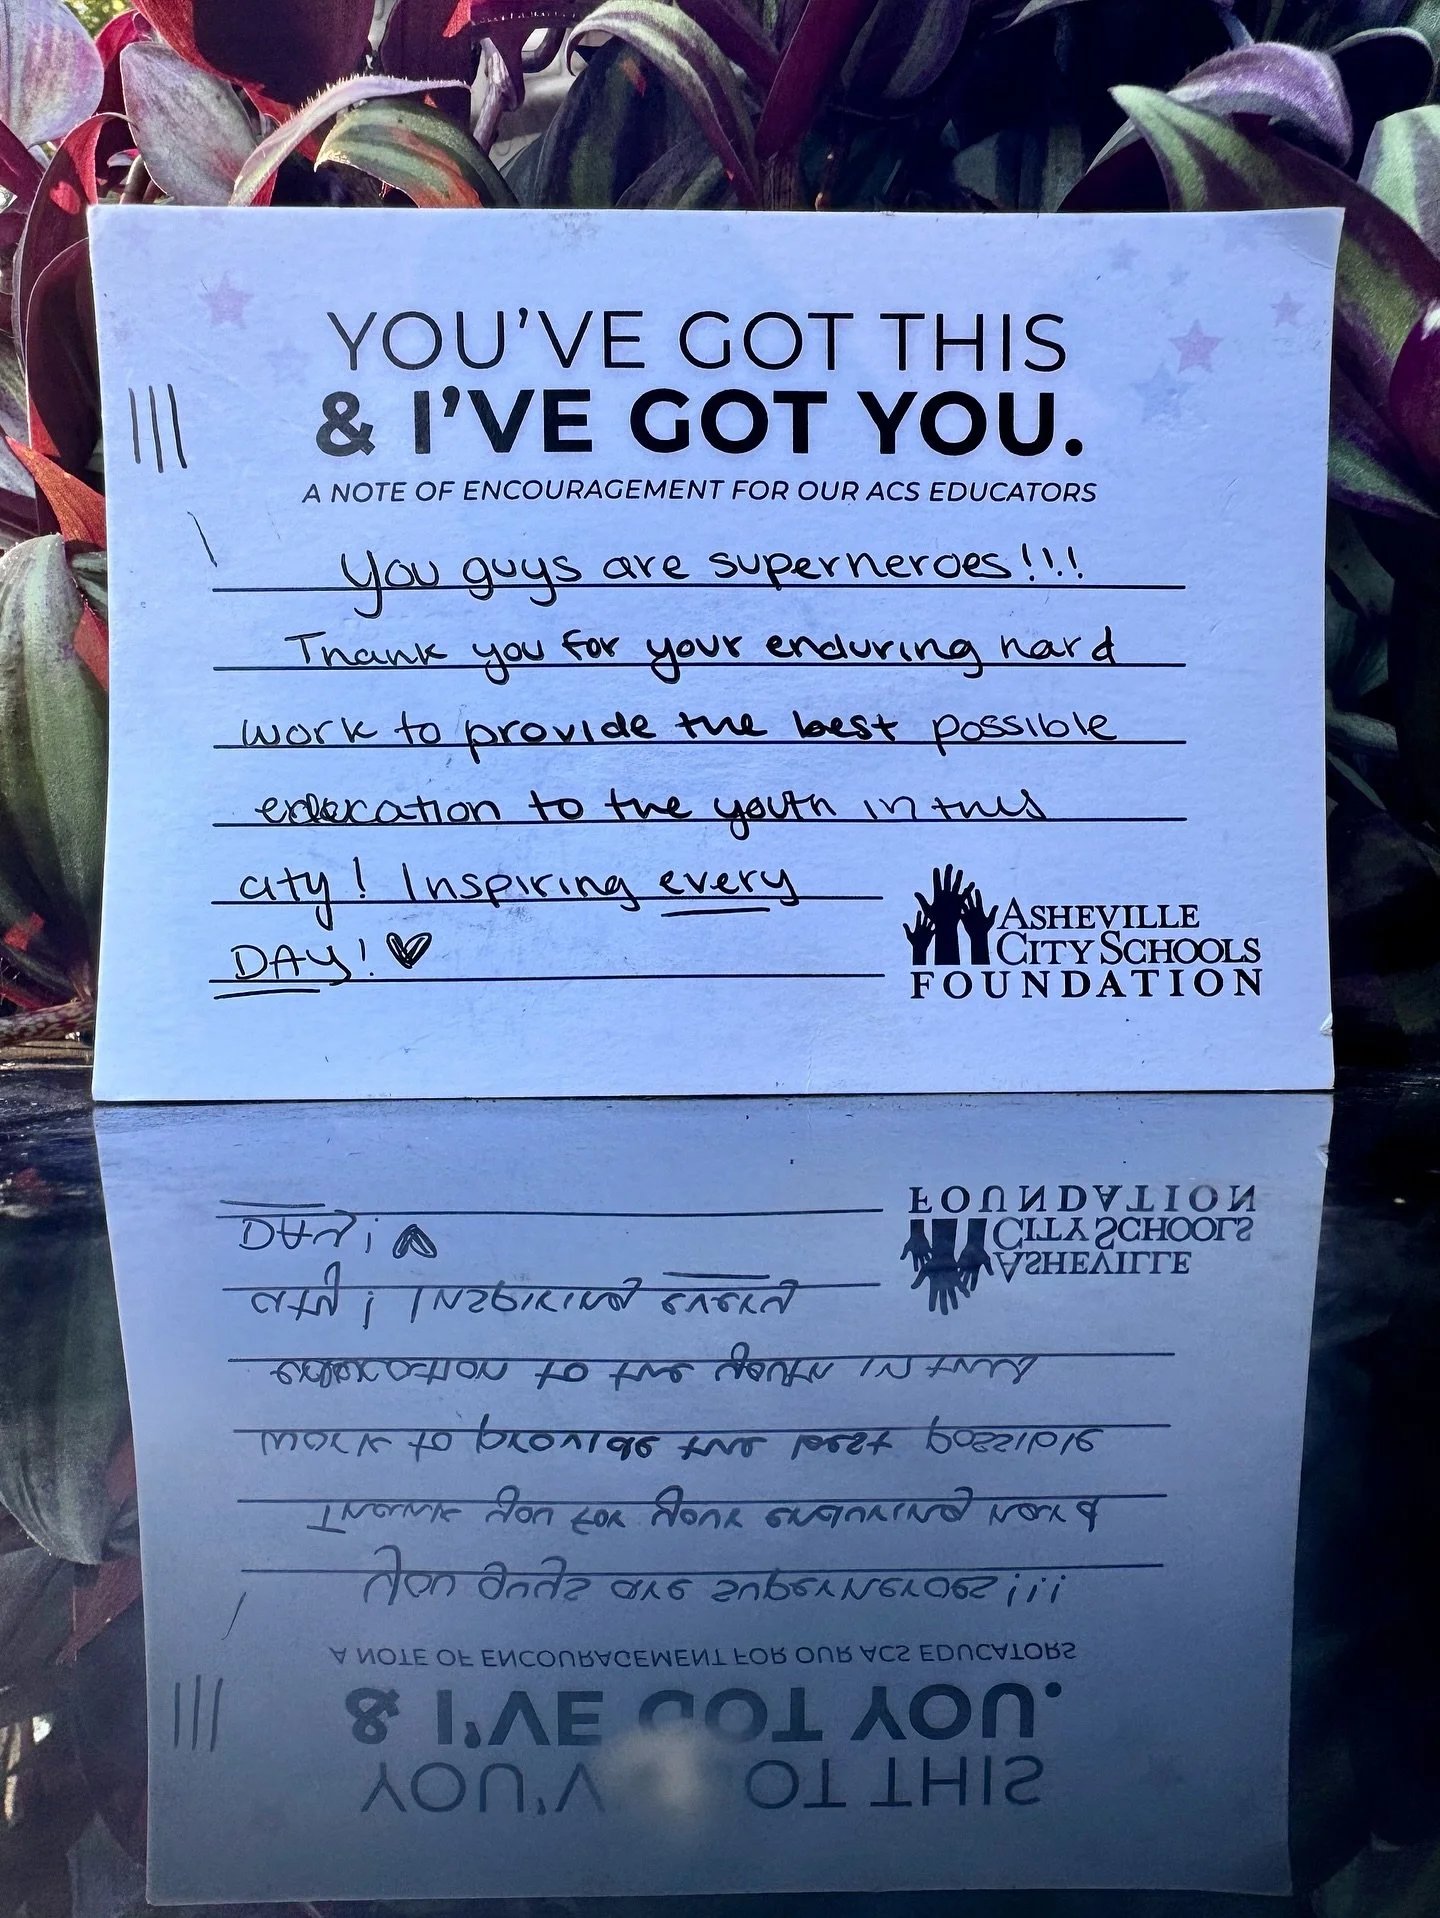 YOU'VE GOT THIS
& I'VE GOT YOU.
A NOTE OF ENCOURAGEMENT FOR OUR ACS EDUCATORS
You guys are superheroes!!!
Thank you for your enduring hard
work to provide the best possible
education to the youth in this
city! Inspiring every
DAY! ♡
ASHEVILLE
CITY SCHOOLS
FOUNDATION